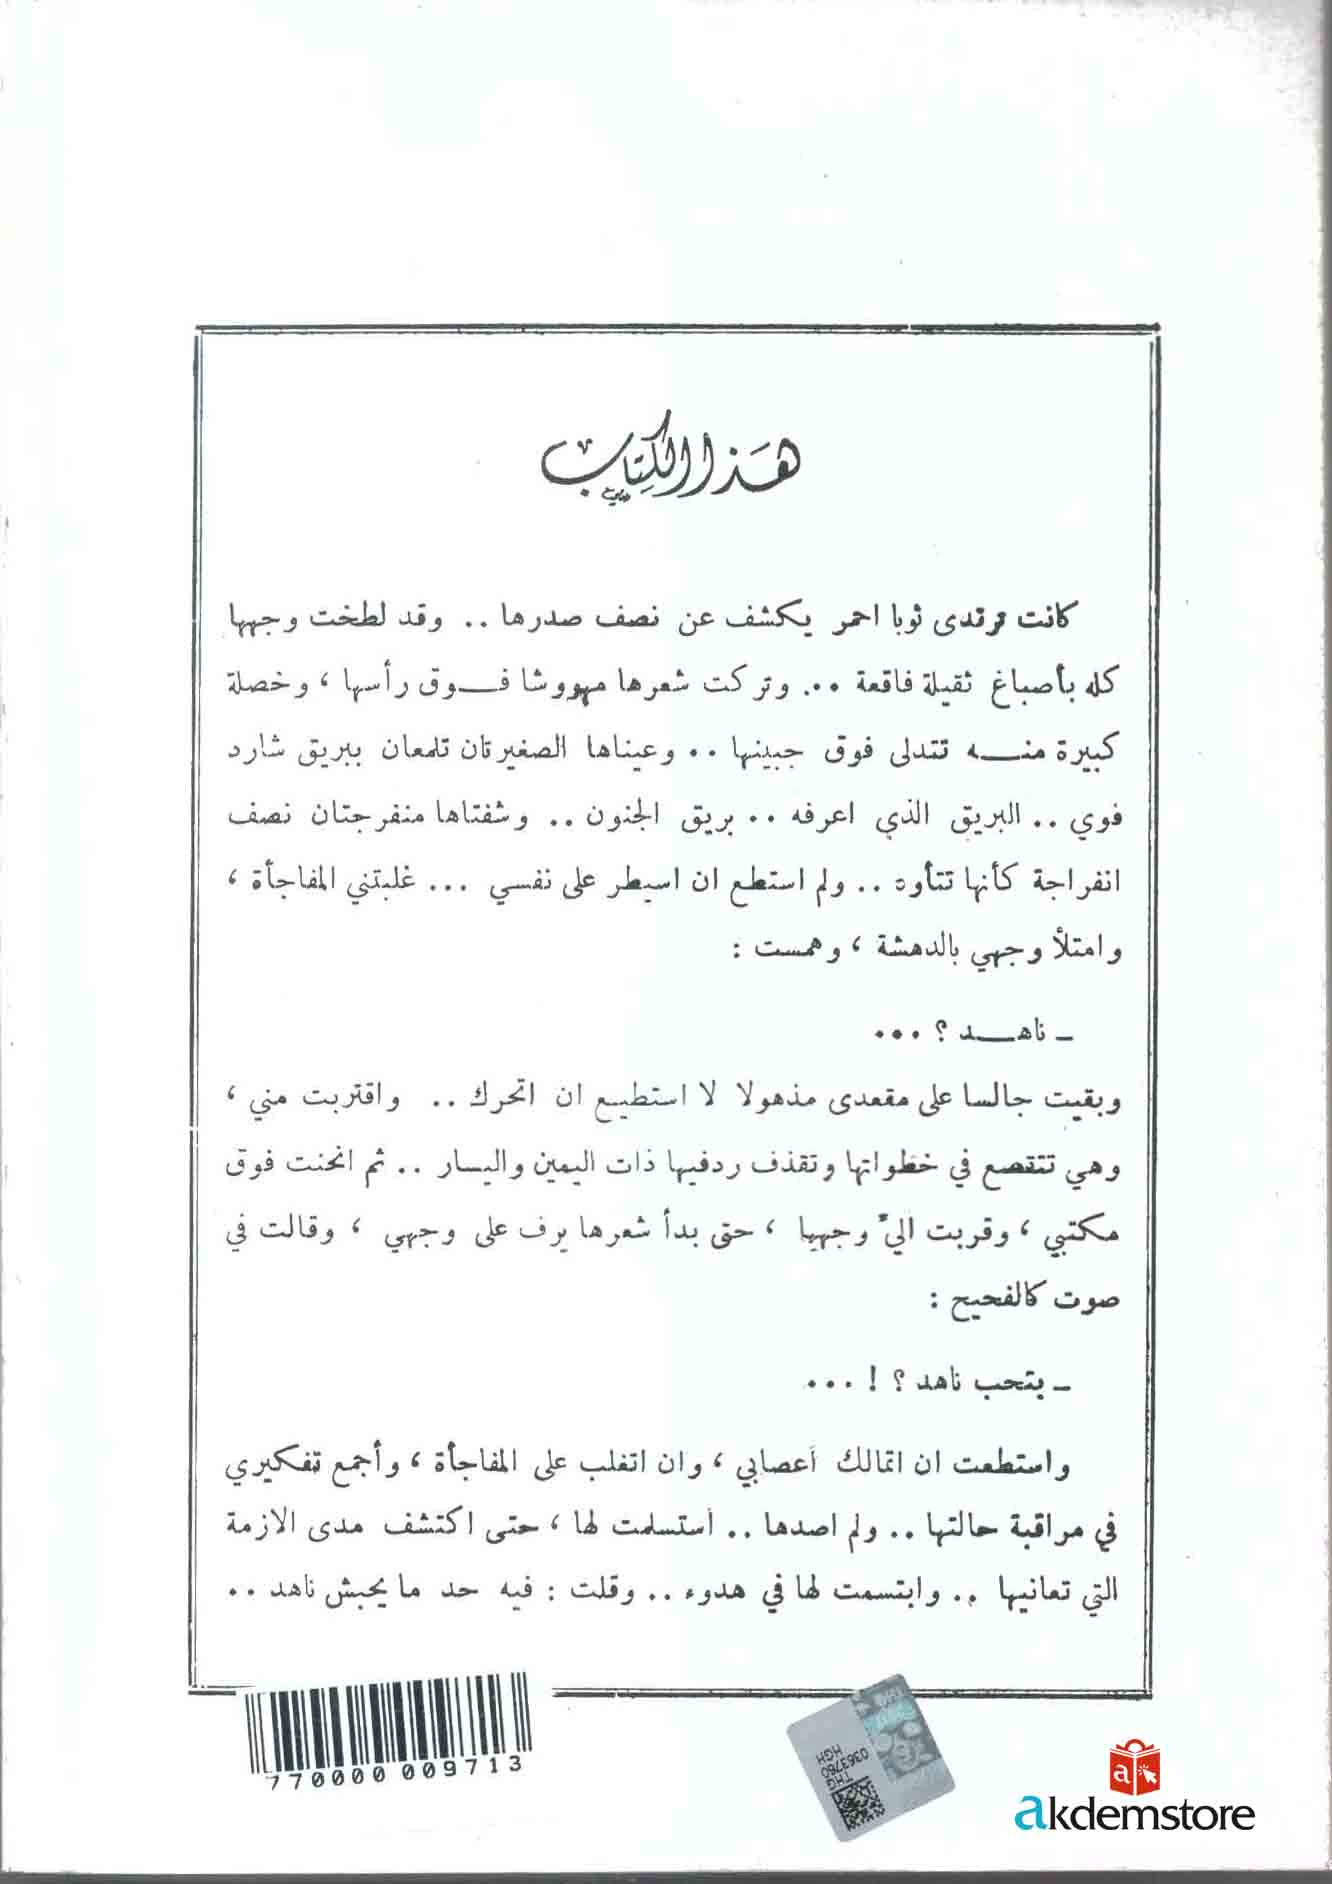 هَذا الكِتَاب
كانت ترتدى ثوبا احمر يكشف عن نصف صدرها .. وقد لطخت وجهها
كله بأصباغ ثقيلة فاقعة ... وتركت شعرها مهووشا فوق رأسها ، وخصلة
كبيرة منه تتدلى فوق جبينها .. وعيناها الصغيرتان تلمعان ببريق شارد
قوي .. البريق الذي اعرفه .. بريق الجنون .. وشفتاها منفرجتان نصف
انفراجة كأنها تتأوه .. ولم استطع ان اسيطر على نفسي ... غلبتني المفاجأة ،
وامتلأ وجهي بالدهشة ، وهمست :
ـ ناهد ؟ ...
وبقيت جالسا على مقعدى مذهولا لا استطيع ان اتحرك .. واقتربت مني ،
وهي تتقصع في خطواتها وتقذف ردفيها ذات اليمين واليسار .. ثم انحنت فوق
مكتبي ، وقربت اليّ وجهها ، حتى بدأ شعرها يرف على وجهي ، وقالت في
صوت كالفحيح :
ـ بتحب ناهد ؟ ! ...
واستطعت ان اتمالك أعصابي ، وان اتغلب على المفاجأة ، وأجمع تفكيري
في مراقبة حالتها .. ولم اصدها .. أستسلمت لها ، حتى اكتشف مدى الازمة
التي تعانيها .. وابتسمت لها في هدوء .. وقلت : فيه حد ما يحبش ناهد ..
770000 009713
THG
0363760
HGH
a
akdemstore